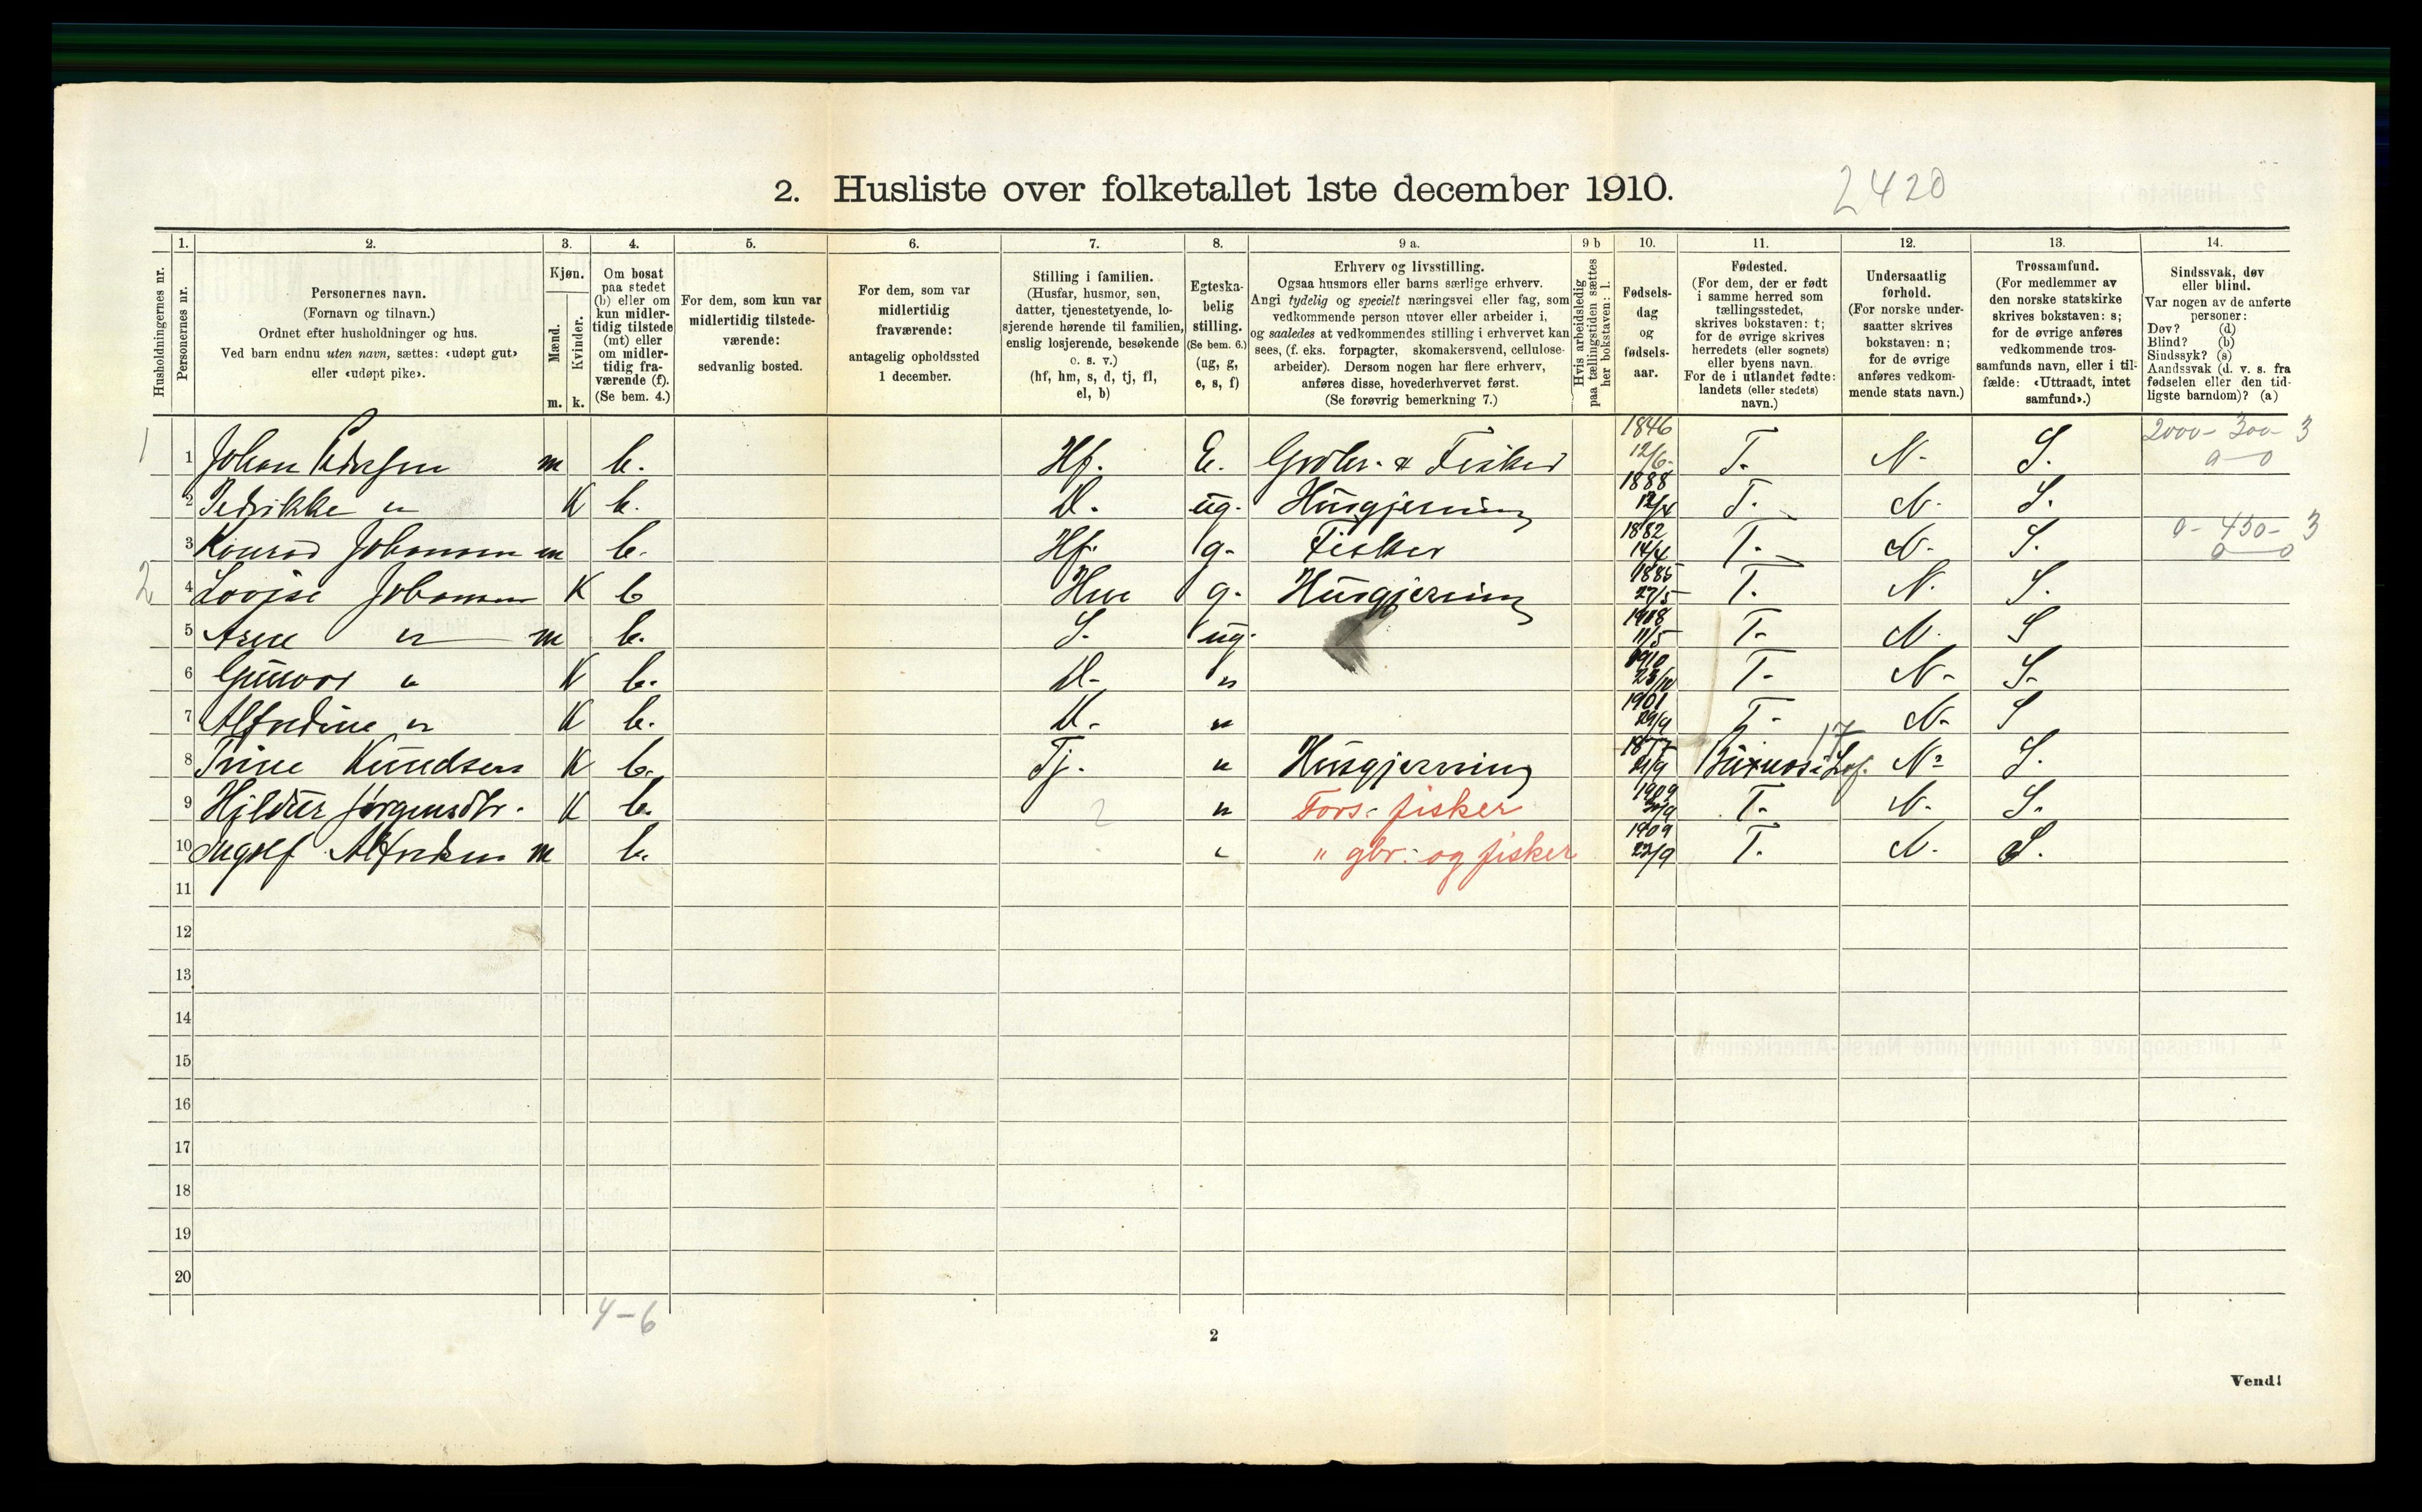 2. Husliste over folketallet 1ste december 1910.
2420
1. 2. 3. 4. 5. 6. 7. 8. 9 a. 9 b 10. 11. 12. 13. 14.
Husholdningernes nr.
Personernes nr.
Personernes navn.
(Fornavn og tilnavn.)
Ordnet efter husholdninger og hus.
Ved barn endnu uten navn, sættes: «udøpt gut»
eller «udøpt pike».
Kjøn.
Mænd.
Kvinder.
m. k.
Om bosat
paa stedet
(b) eller om
kun midler-
tidig tilstede
(mt) eller
om midler-
tidig fra-
værende (f).
(Se bem. 4.)
For dem, som kun var
midlertidig tilstede-
værende:
sedvanlig bosted.
For dem, som var
midlertidig
fraværende:
antagelig opholdssted
1 december.
Stilling i familien.
(Husfar, husmor, søn,
datter, tjenestetyende, lo-
sjerende hørende til familien,
enslig losjerende, besøkende
o. s. v.)
(hf, hm, s, d, tj, fl,
el, b)
Egteska-
belig
stilling.
(Se bem. 6.)
(ug, g,
e, s, f)
Erhverv og livsstilling.
Ogsaa husmors eller barns særlige erhverv.
Angi tydelig og specielt næringsvei eller fag, som
vedkommende person utøver eller arbeider i,
og saaledes at vedkommendes stilling i erhvervet kan
sees, (f. eks. forpagter, skomakersvend, cellulose-
arbeider). Dersom nogen har flere erhverv,
anføres disse, hovederhvervet først.
(Se forøvrig bemerkning 7.)
Hvis arbeidsledig
paa tællingstiden sættes
her bokstaven: l.
Fødsels-
dag
og
fødsels-
aar.
Fødested.
(For dem, der er født
i samme herred som
tællingsstedet,
skrives bokstaven: t;
for de øvrige skrives
herredets (eller sognets)
eller byens navn.
For de i utlandet fødte:
landets (eller stedets)
navn.)
Undersaatlig
forhold.
(For norske under-
saatter skrives
bokstaven: n;
for de øvrige
anføres vedkom-
mende stats navn.)
Trossamfund.
(For medlemmer av
den norske statskirke
skrives bokstaven: s;
for de øvrige anføres
vedkommende tros-
samfunds navn, eller i til-
fælde: «Uttraadt, intet
samfund».)
Sindssvak, døv
eller blind.
Var nogen av de anførte
personer:
Døv? (d)
Blind? (b)
Sindssyk? (s)
Aandssvak (d. v. s. fra
fødselen eller den tid-
ligste barndom)? (a)
1 1 Johan m b. Hf. E. & Fisker 1846 12/6- T. N. S. 2000- 300- 3
0-0
2 Pedrikke " K b. D. ug. Husgjerning 1888 T. N. S.
3 Konrad Johansen m b. Hf. g. Fisker 1882 14/4 T. N. S. 0- 450- 3
0-0
2 4 Lovise Johansen K b g. Husgjerning 27/5 T. N. S.
5 " m b. S. ug. 1908 11/5 T. N. S
6 Gunvor " K b. D. " 1910 T. N. S.
7 Alfredine " K b. D. " 1901 29/9 T. N. S
8 Trine Knudsen K b. Tj. " Husgjerning 17 N. S.
9 Jørgensdtr. K b. " Fors: fisker 1909 T. N. S.
10 Ingolf Alfredsen m b. " " gbr: og fisker 1909 T. N. S.
11
12
13
14
15
16
17
18
19
20
4-6
2
Vend!